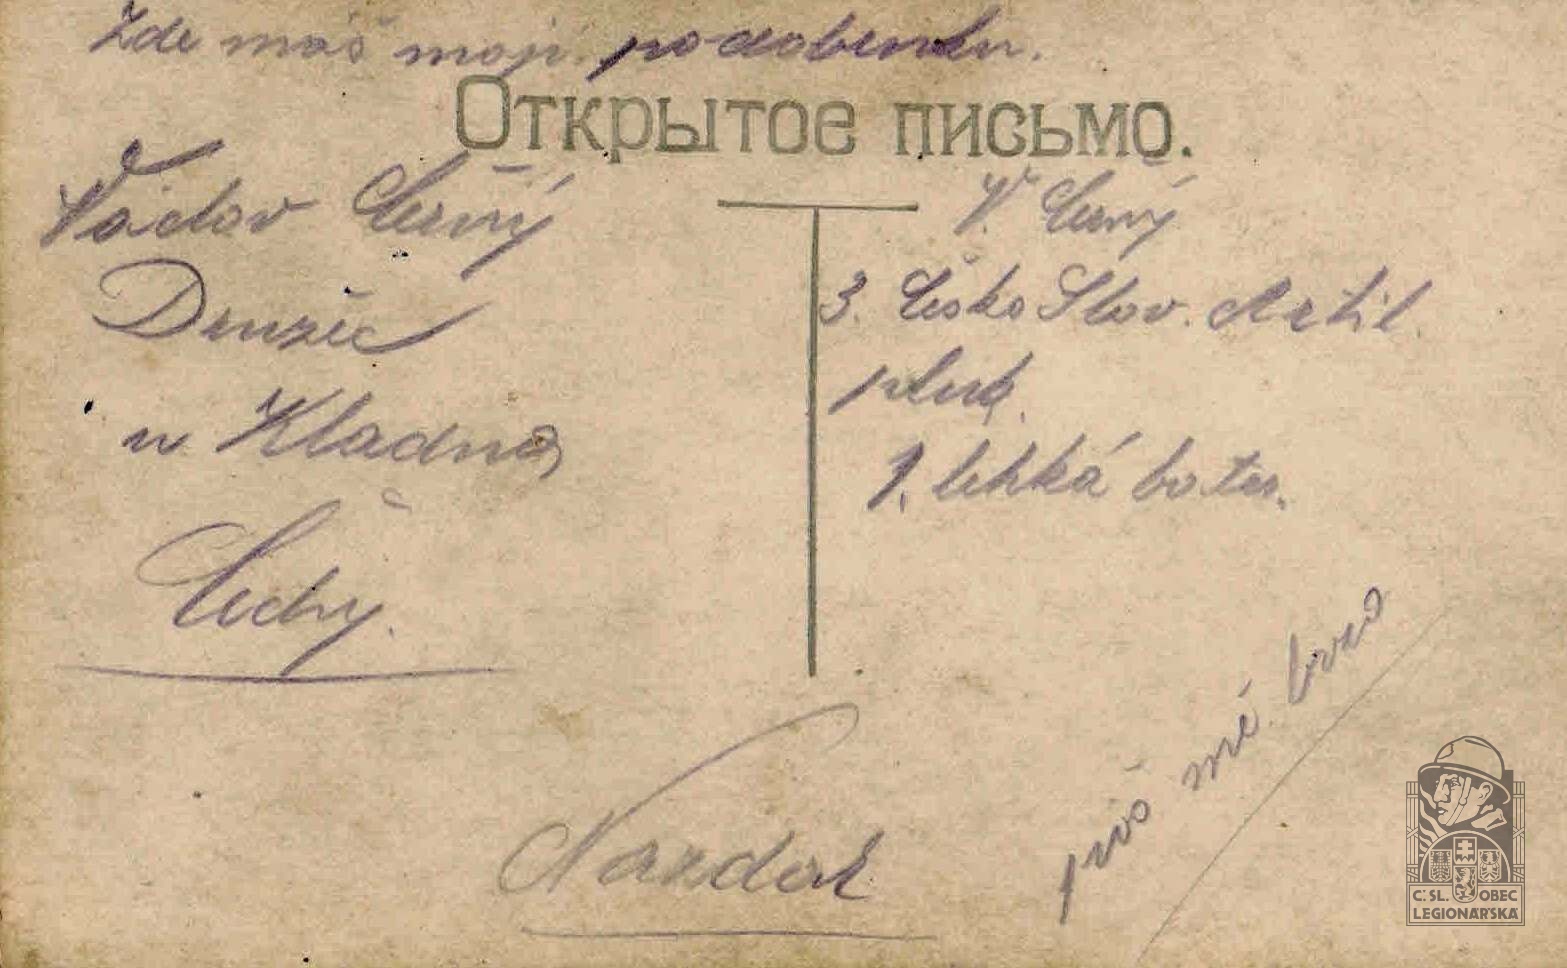 Zde máš moji podobenku.
Открытое письмо.
Václav Černý
Družec
u Kladna
Čechy.
V. Černý
3. Česko Slov. Artil.
pluk.
1. lehká bater.
Nazdar
mé
C.SL. OBEC
LEGIONÁŘSKÁ